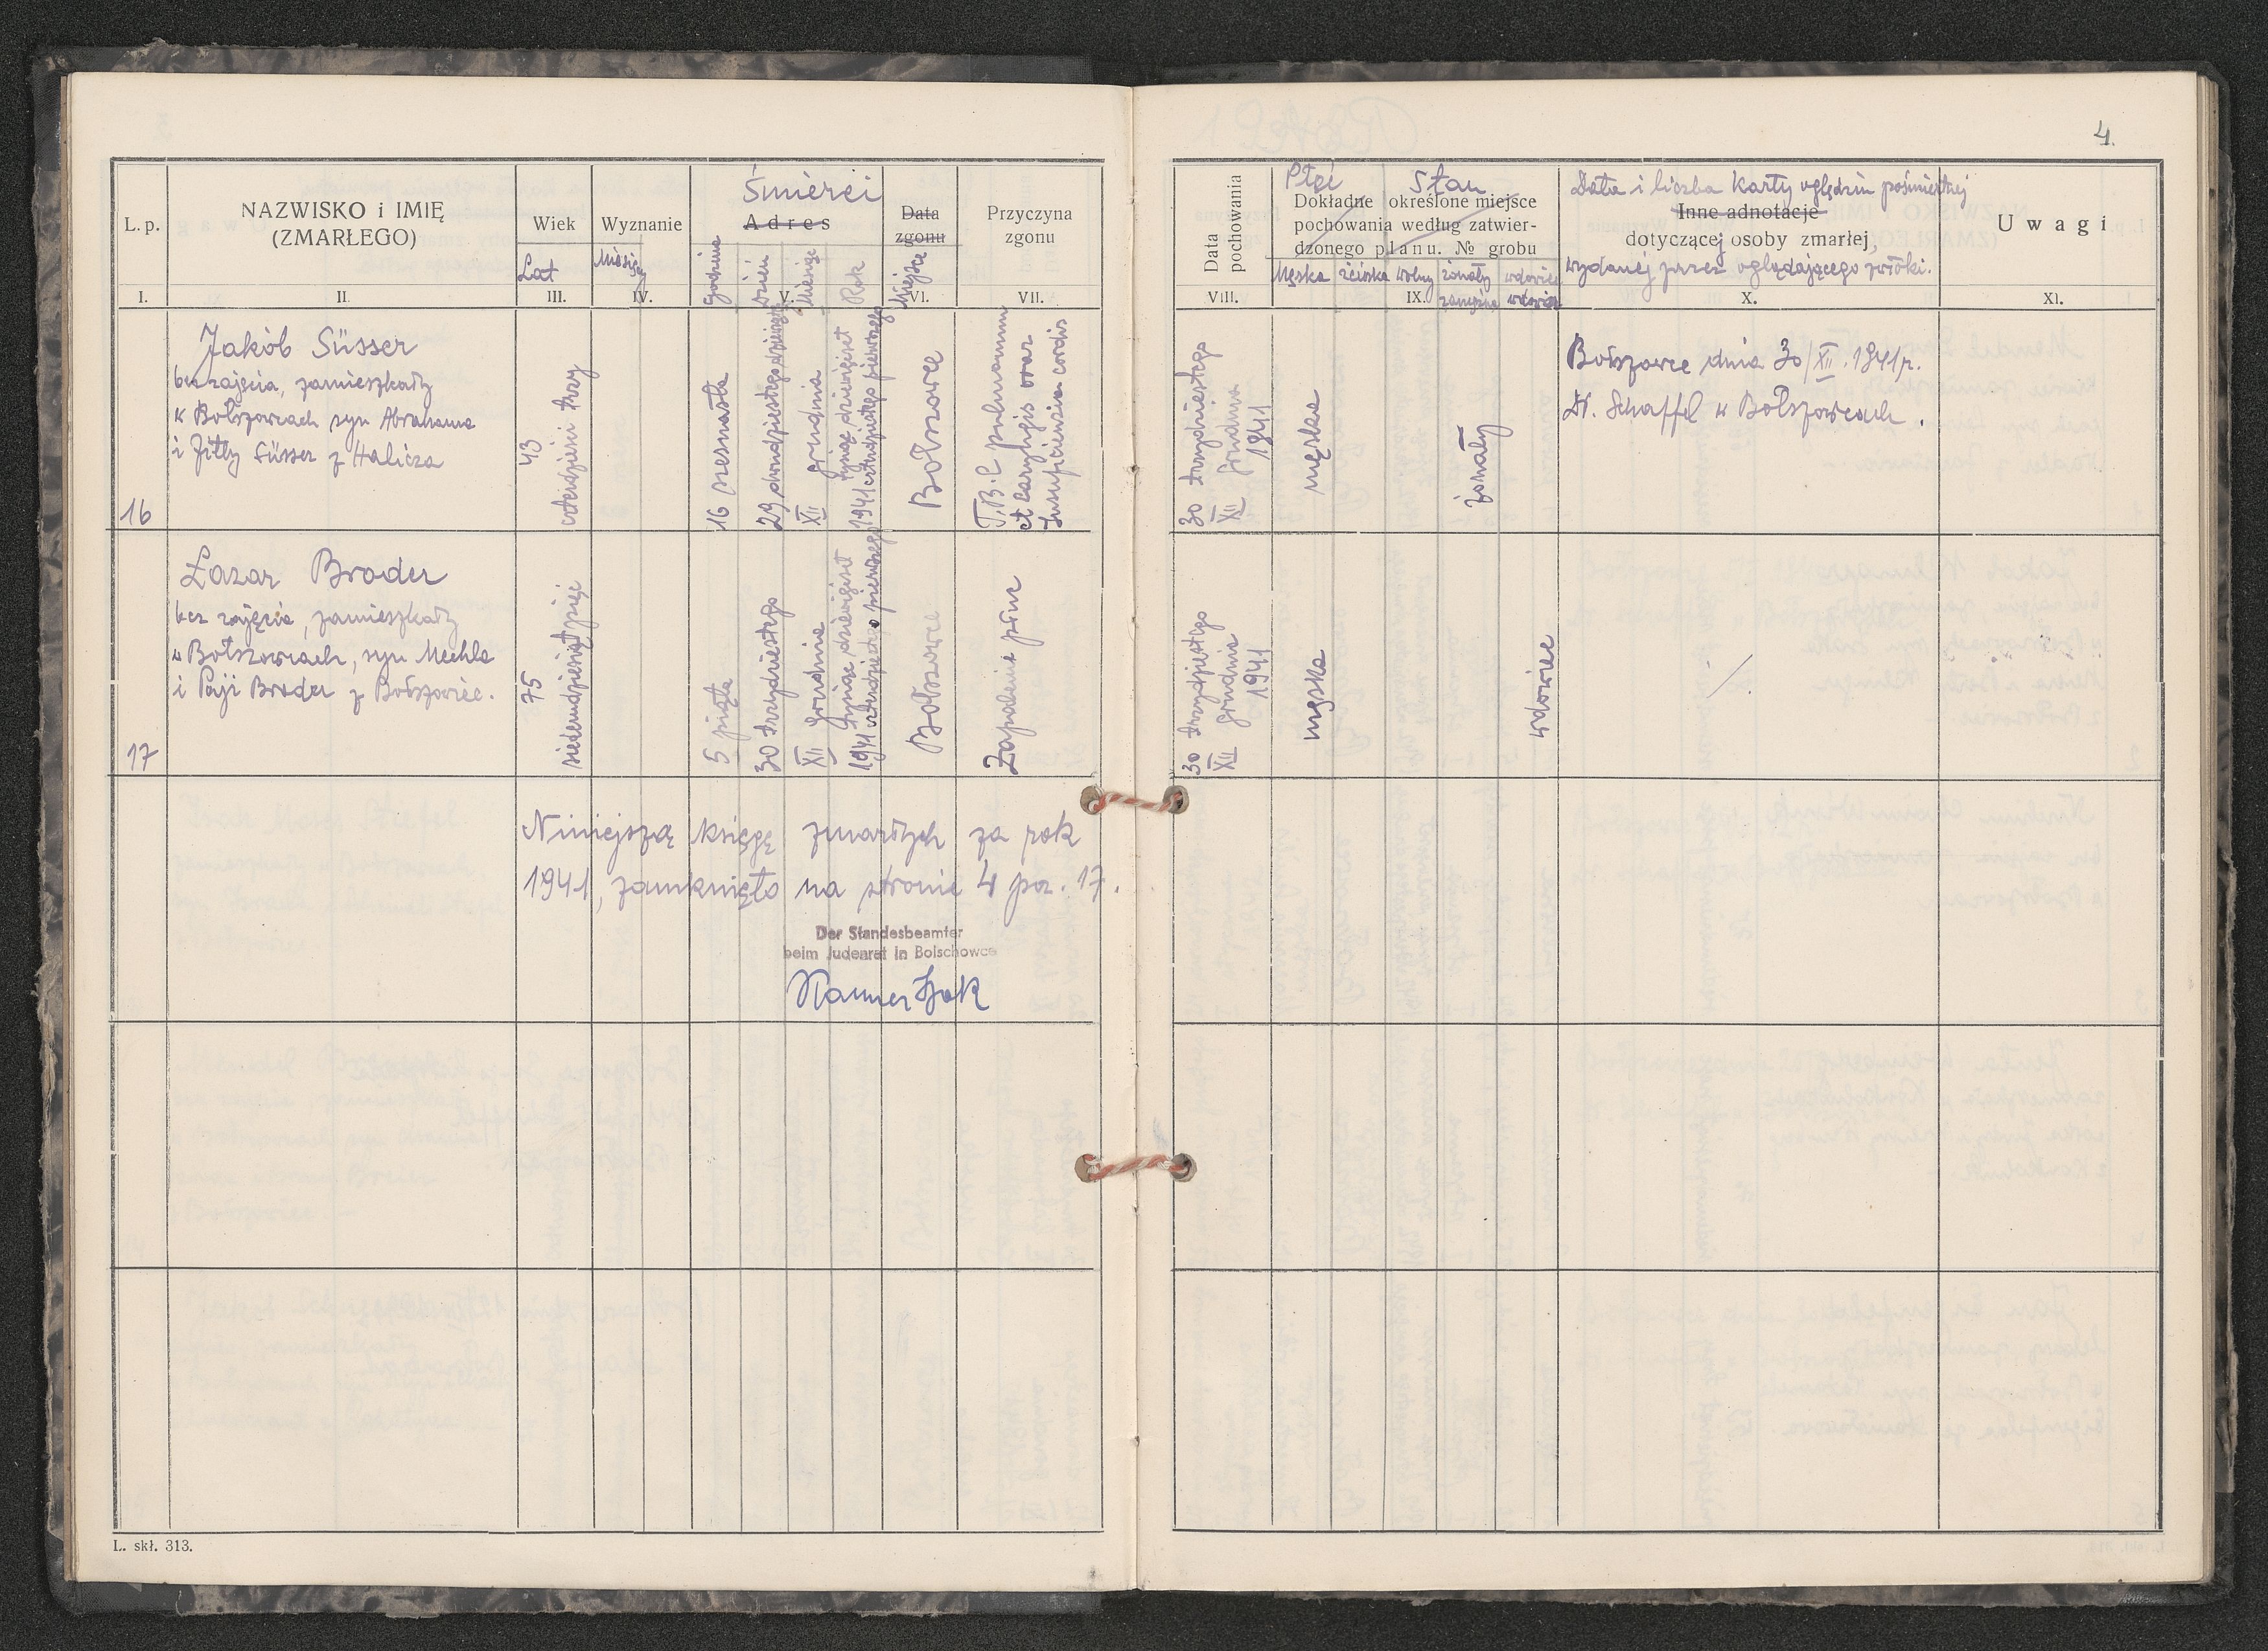 4.
L. p.
NAZWISKO i IMIĘ
(ZMARŁEGO)
Wiek
Lat
Wyznanie
Miesięcy
Śmierci
Adres
Godzina
Dzień
Miesiąc
Rok
Data
zgonu
Miejsce
Przyczyna
zgonu
I.
II.
III.
IV.
V.
VI.
VII.
Data
pochowania
Płeć Stan
Dokładne określone miejsce
pochowania według zatwier-
dzonego planu. № grobu
Męska żeńska wolny żonaty wdowiec
zamężna wdowa
Data i liczba karty oględzin pośmiertnej
Inne adnotacje
dotyczącej osoby zmarłej,
wydanej przez oglądającego zwłoki.
Uwagi
VIII.
IX.
X.
XI.
16
Jakób Süsser
bez zajęcia, zamieszkały
w Bołszowcach syn Abrahama
i Zitty Süsser z Halicza
43
czterdzieści trzy
16 szesnasta
29 dwudziestego dziewiątego
XII grudnia
tysiąc dziewięćset
1941 czterdziestego pierwszego
Bołszowce
T.B.C pulmonum
et laryngis oraz
Insuficienzia cordis
30 trzydziestego
XII Grudnia
1941
męska
żonaty
Bołszowce dnia 30/XII.1941r.
Dr. Schaffel w Bołszowcach.
17
Łazar Broder
bez zajęcia, zamieszkały
w Bołszowcach, syn Mechla
i Paji Broder z Bołszowiec.
75
siedemdziesiąt pięć
5 piąta
30 trzydziestego
XII Grudnia
tysiąc dziewięćset
1941 czterdziestego pierwszego
Bołszowce
Zapalenie płuc
30 trzydziestego
XII Grudnia
1941
męska
wdowiec
Niniejszą księgę zmarłych za rok
1941, zamknięto na stronie 4 poz. 17.
Der Standesbeamter
beim Judenrat in Bolschowce
L. skł. 313.